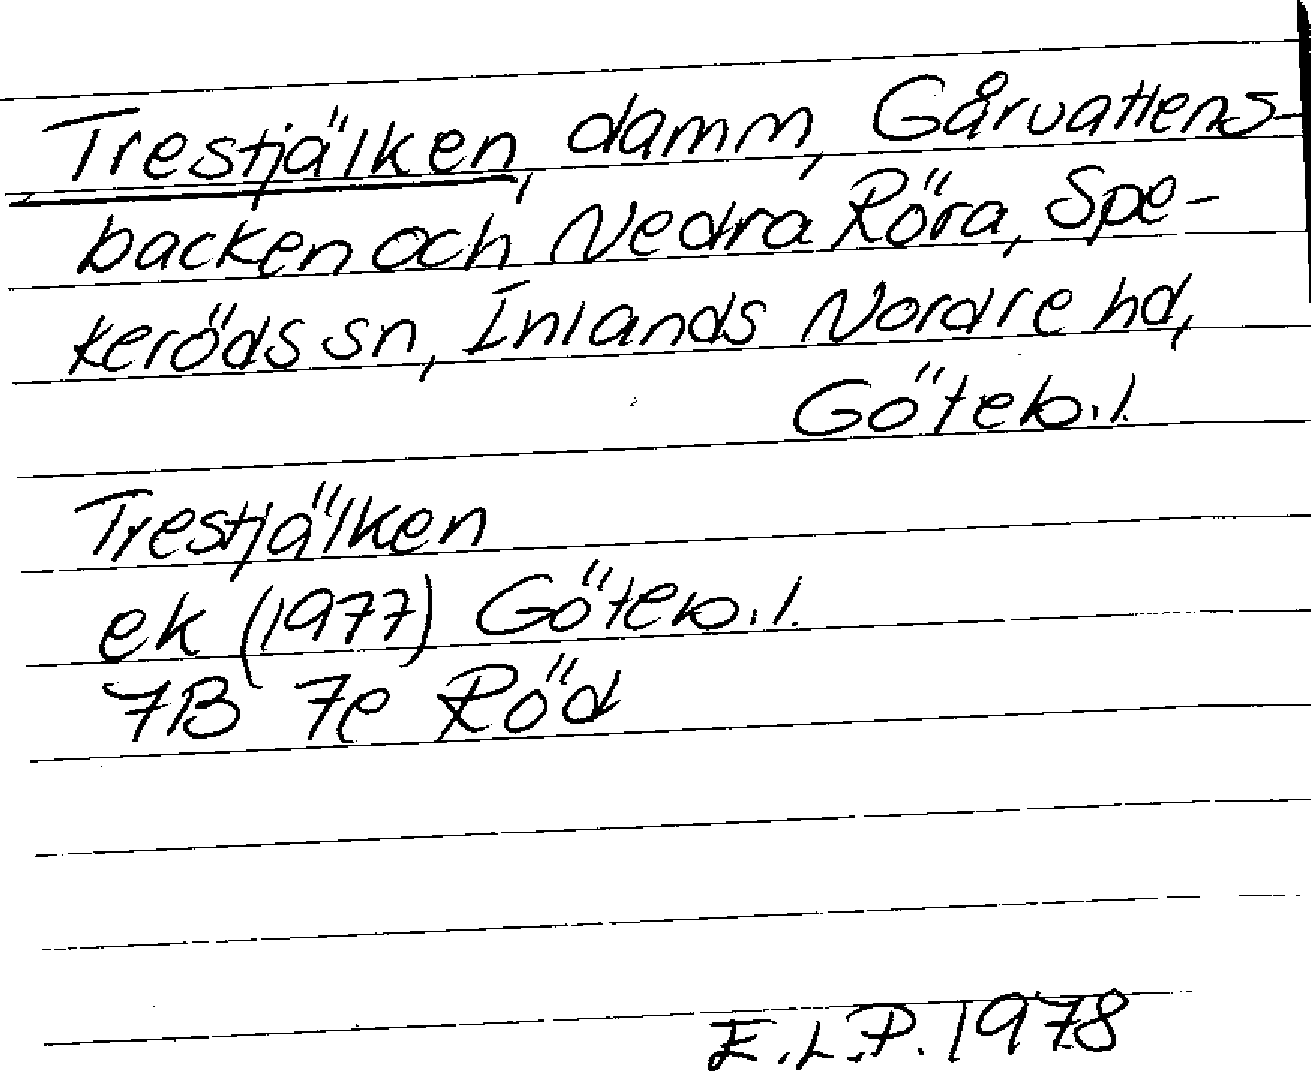 Trestjälken, damm, Gårvattens-
backen och Nedra Röra, Spe-
keröds sn, Inlands Nordre hd,
Göteb.l.
Trestjälken
ek (1977) Göteb.l.
7B 7e Röd
E.L.P. 1978